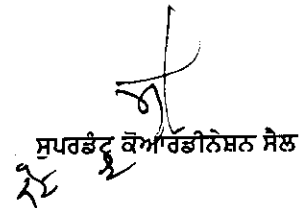 ਸੁਪਰਡੰਟ ਕੋਆਰਡੀਨੇਸ਼ਨ ਸੈਲ